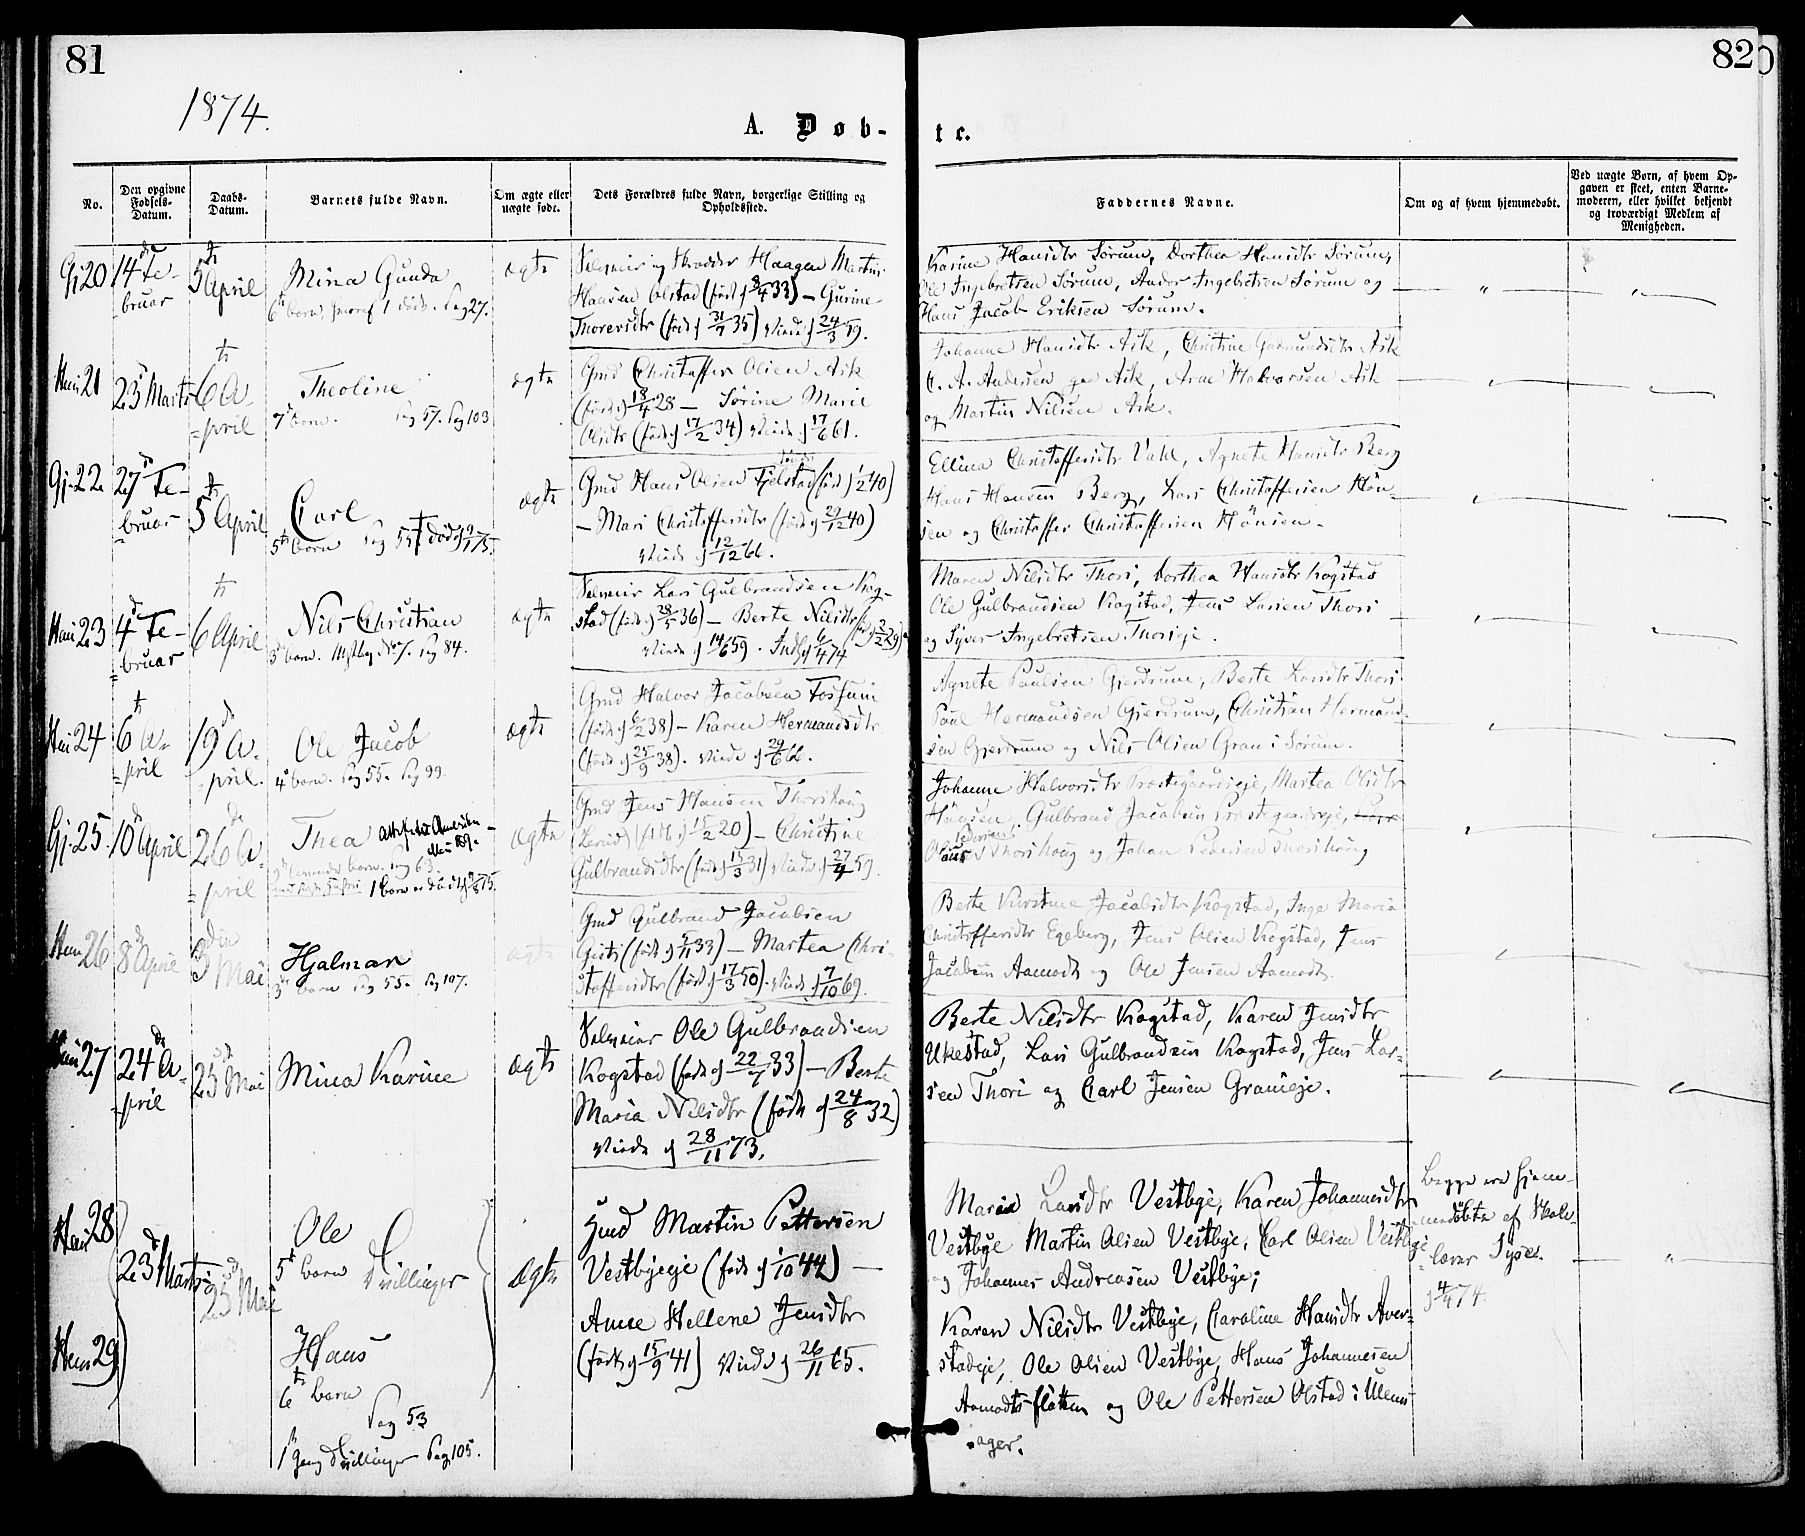 81
82
1874.
A. Døb-
te.
No.
Den opgivne Fødsels-Datum.
Daabs-Datum.
Barnets fulde Navn.
Om ægte eller uægte født.
Dets Forældres fulde Navn, borgerlige Stilling og Opholdssted.
Faddernes Navne.
Om og af hvem hjemmedøbt.
Ved uægte Børn, af hvem Opgaven er skeet, enten Barnemoderen, eller hvilket bekjendt og troværdigt Medlem af Menigheden.
Gj 20
14de Februar
5te April
Mina Gunda
6te barn 1 død. Pag 27.
ægte
Selveier og Haagen Martin
Hansen Olstad (født d 8/4 33) – Gurine
Thorersdtr (født d 31/7 35) Viede d 24/3 59.
Karine Hansdtr Sørum, Dorthea Hansdtr Sørum,
Ole Ingebretsen Sørum, Andor Ingebretsen Sørum og
Hans Jacob Eriksen Sørum.
Hei 21
23de Marts
6te April
Theoline
7de barn. Pag 57. Pag 103
ægte
Gmd Christoffer Olsen Ask
(født d 18/4 28 – Sørine Marie
Olsdtr (født d 17/2 34) Viede d 17/6 61.
Johanne Hansdtr Ask, Christine Gudmundsdtr Ask
C. A. Andersen Ask, Arne Halvorsen Ask
og Martin Nilsen Ask.
Gj. 22
27de Februar
5te April
Carl
5te barn Pag 55 død
ægte
Gmd Hans Olsen Fjelstad (født d 1/2 40)
– Mari Christoffersdtr (født d 29/12 40)
Viede d 12/12 66.
Ellina Christoffersdtr Vahl, Agnete Hansdtr Berg
Hans Hansen Berg, Lars Christoffersen Høn-
sen og Christoffer Christoffersen Hønsen.
Hei 23
4de Februar
6te April
Nils Christian
3die barn. No 7. Pag 84.
ægte
Selveier Lars Gulbrandsen Kog-
stad (født d 28/5 36) – Berte Nilsdtr
Viede d 14/6 59. Indg d 6/4 74
Maren Nilsdtr Thori, Dorthea Hansdtr Kogstad
Ole Gulbrandsen Kogstad, Jens Larsen Thori
og Syver Ingebretsen Thorieje.
Hei 24
6te April
19de April.
Ole Jacob
4de barn. Pag 55. Pag 99.
ægte
Gmd Halvor Jacobsen Fossum
(født d 6/2 38) – Karen Hermandsdtr
(født d 25/9 38). Viede d 29/6 66.
Agnete Paulsen Gjerdrum, Berte Larsdtr Thori
Paul Hermandsen Gjerdrum, Christian Hermand-
sen Gjerdrum og Nils Olsen Gran i Sørum.
Gj. 25.
10de April
26de April
Thea
9de barn. Pag 63.
1 barn er død
ægte
Gmd Jens Hansen Thorshaug
(født d 15/2 20) – Christine
Gulbrandsdtr (født d 15/3 31) Viede d 27/4 59.
Johanne Halvorsdtr Præstegaardseje, Martea Olsdtr
Hønsen, Gulbrand Jacobsen Præstegaardseje,
Thorshaug og Johan Pedersen Thorshaug
Hei 26
8de April
3die Mai
Hjalmar
3die barn Pag 55. Pag 107.
ægte
Gmd Gulbrand Jacobsen
(født d 5/11 33) – Martea Chri-
stoffersdtr (født d 17/3 50). Viede d 7/10 69.
Berte Kirstine Jacobsdtr Kogstad, Inga Maria
Christoffersdtr Egeberg, Jens Olsen Kogstad, Jens
Jacobsen Aamodt og Ole Jensen Aamodt.
Hei 27
24de April
25de Mai
Mina Karine
ægte
Selveier Ole Gulbrandsen
Kogstad (født d 22/7 33) – Berte
Maria Nilsdtr (født d 24/8 32)
Viede d 28/11 73.
Berte Nilsdtr Kogstad, Karen Jensdtr
Ukestad, Lars Gulbrandsen Kogstad, Jens Lar-
sen Thori og Carl Jensen Granieje.
Hei 28
23de Marts
25de Mai
Ole
5te barn
Tvillinger
Hei 29
Hans
6te barn
Pag 53
1ste Gang Tvillinger Pag 105.
ægte
Hmd Martin Pettersen
Vestbyeje (født d 1/10 44) –
Anne Hellene Jensdtr
(født d 15/9 41) Viede d 26/11 65.
Maria Larsdtr Vestbye, Karen Johannesdtr
Vestbye Martin Olsen Vestbye, Carl Olsen Vestbye
og Johannes Andreasen Vestbye;
Karen Nilsdtr Vestbye, Caroline Hansdtr Aver-
stadeje, Ole Olsen Vestbye, Hans Johannesen
Aamodtsflaten og Ole Pettersen Olstad i Ullens-
ager.
Begge ere hjem-
medøbte af Skole-
lærer Syse
d 4/4 74.